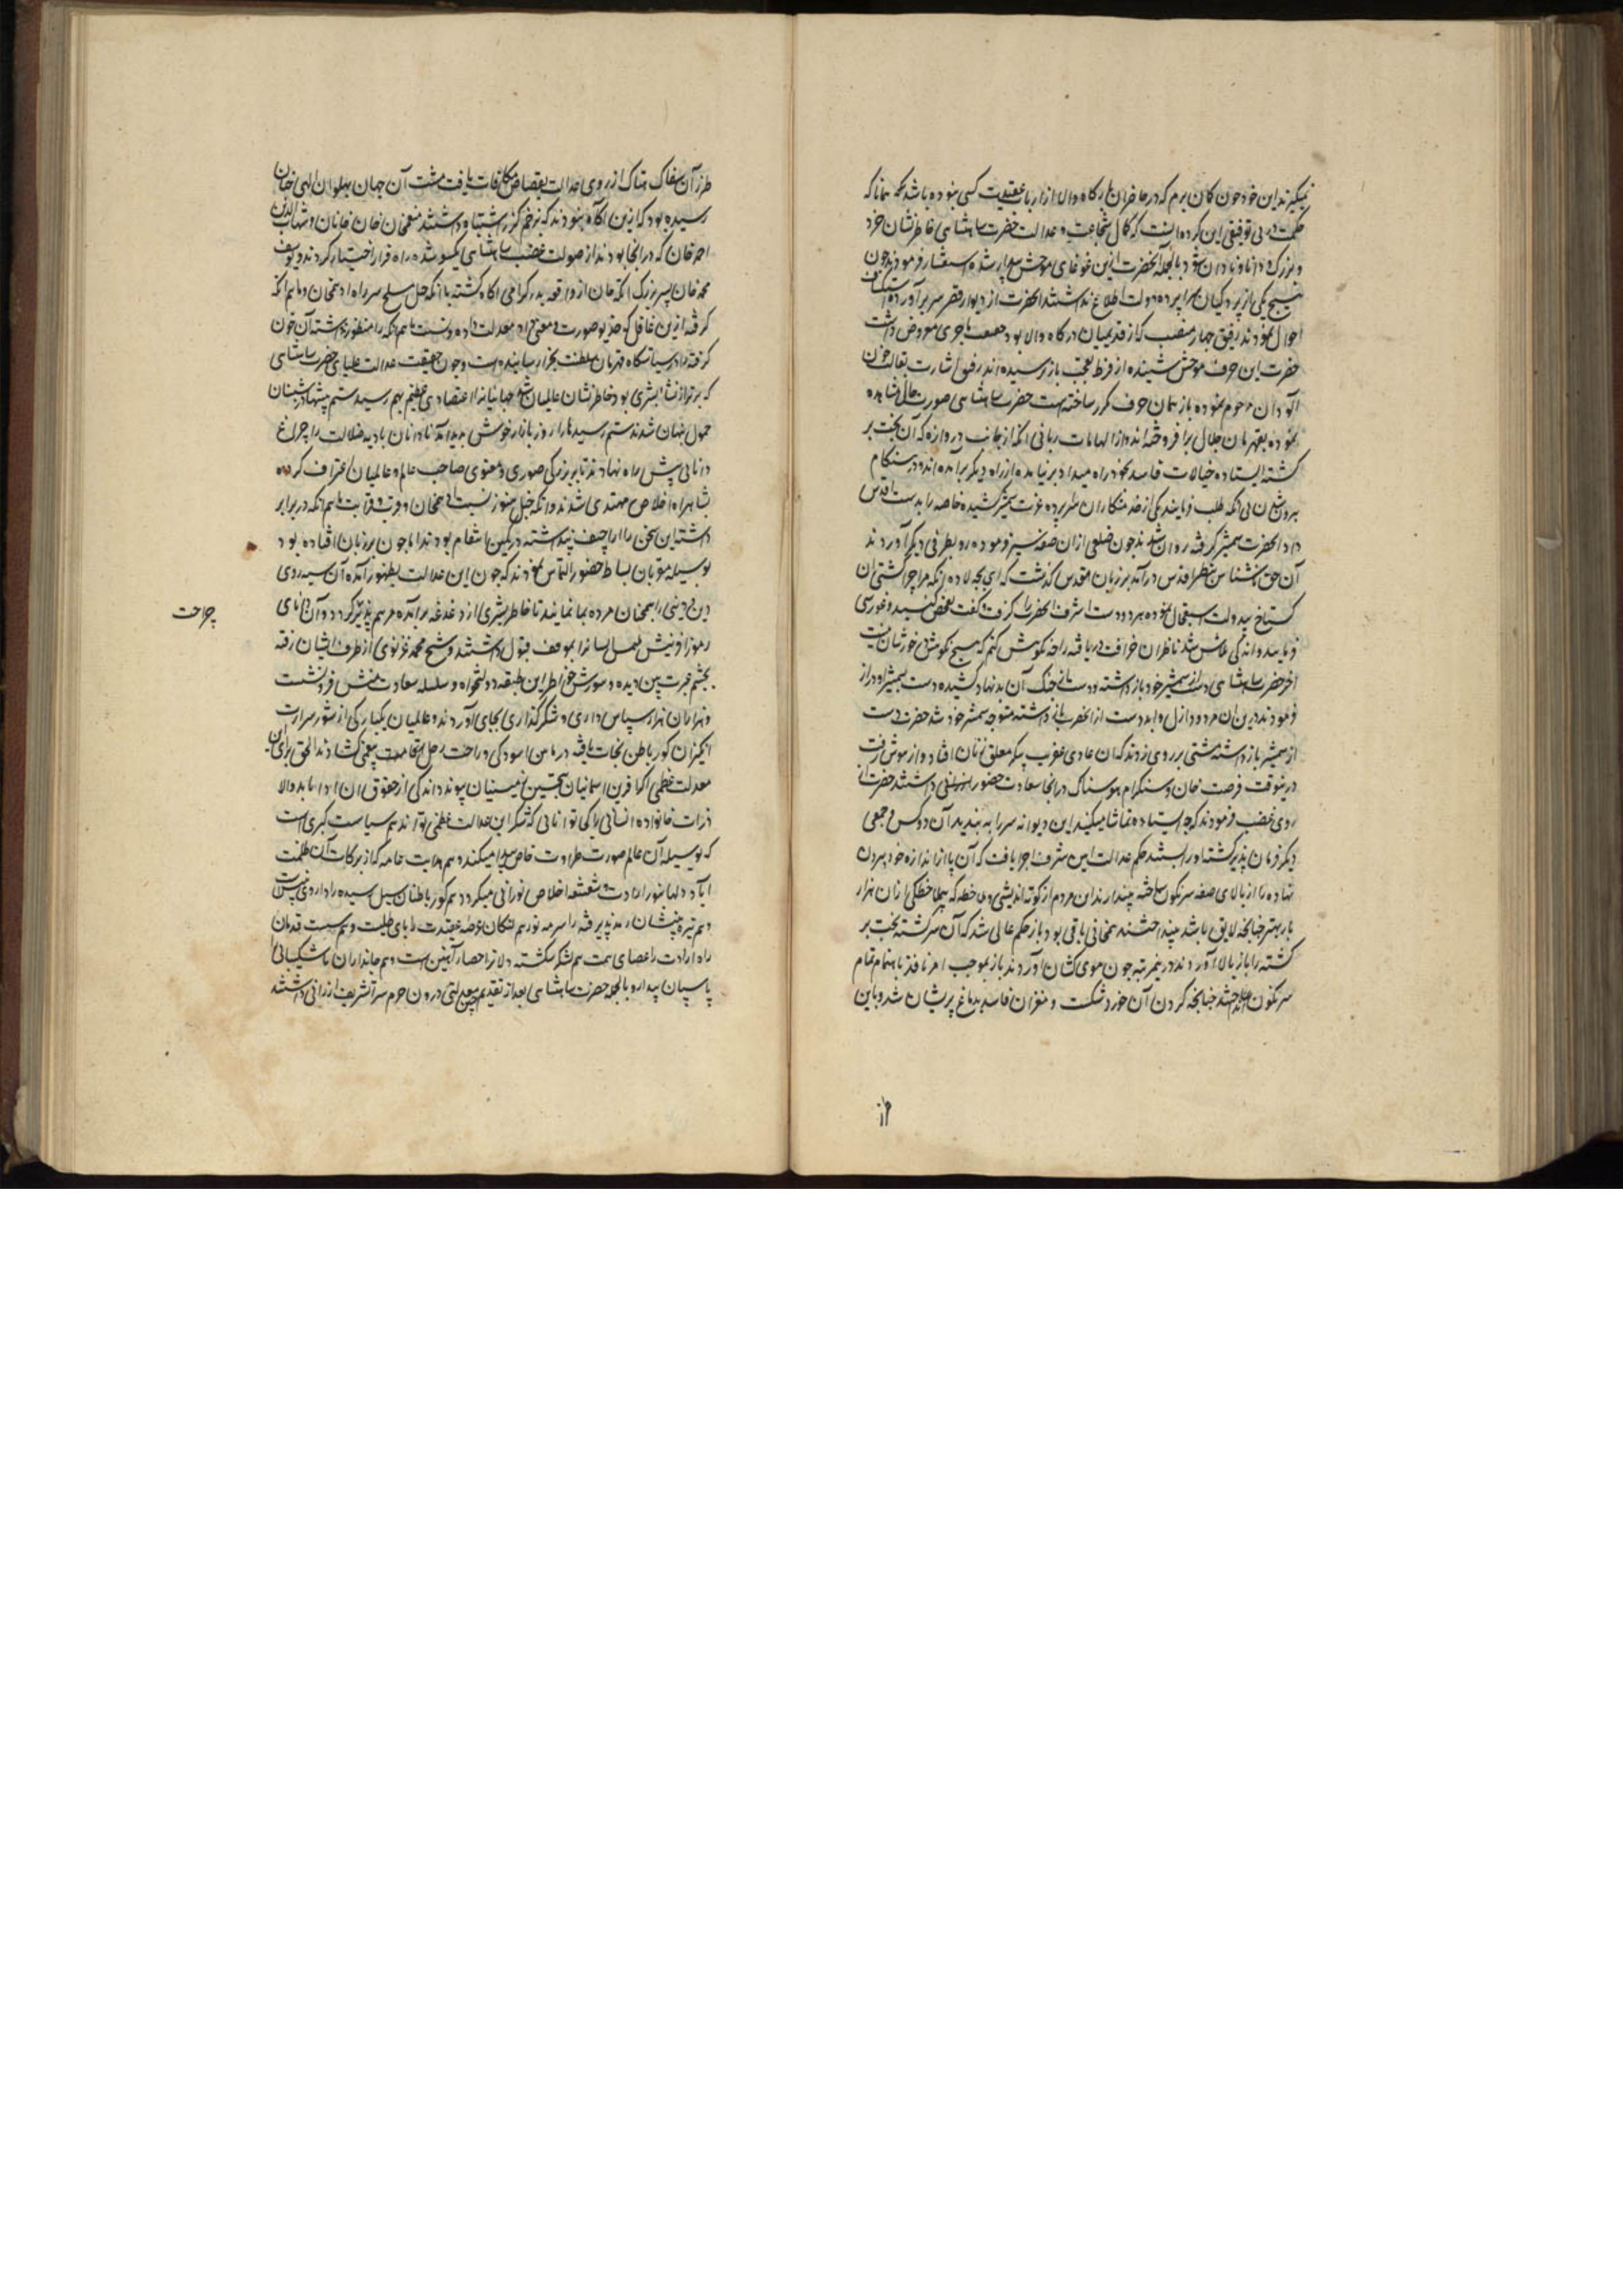 نمیگیرند این خود چون کان برم که در حاضران بارگاه والا از ارباب عقیدت کسی نبوده باشد همانا که
حکمت در بی توفیقی این گروه آنست که کمال شجاعت و عدالت حضرت شاهنشاهی خاطرنشان خرد
و بزرگ و دانا و نادان شود بالجمله آنحضرت ازین غوغای موحش بیدار شده استفسار فرمودند چون
هیچ یکی از پردگیان سراپرده دولت اطلاع نداشتند آنحضرت از دیوار قصر سر برآورده استکشاف
احوال نمودند رفیق چهار منصب که از قدیمیان درگاه والا بود حقیقت ماجری معروض داشت
حضرت این حرف موحش شنیده از فرط تعجب باز پرسیده اند رفیق اشارت بقالب خون
آلود آن مرحوم نموده باز همان حرف مکرر ساخته است حضرت شاهنشاهی صورت حال مشاهده
نموده بقهرمان جلال برافروخته اند و از الهامات ربانی آنکه از جانب دروازه که آن بخت بر
گشته ایستاده خیالات فاسد بخود راه میداد برنیامده از راه دیگر برآمده اند و در هنگام
بیرون شدن بی آنکه طلب فرمایند یکی از خدمتکاران سراپرده عزت شمشیر کشیده خاصه را بدست اقدس
داد آنحضرت شمشیر گرفته روان شدند چون ضلعی از آن صفه سیر فرموده رو بطرفی دیگر آوردند
آن حق ناشناس بنظر اقدس درآمد بر زبان مقدس گذشت که ای بچه لاده انکه ما را چرا کشتی آن
گستاخ بیدولت استعجال نموده هر دو دست اشرف آنحضرت را گرفت و گفت تفحص کنید و غوررسی
فرمایید و اندکی تلاش شد ناظران خرافت دریافته را چه نکوهش کنم که هیچ نکوهش در خورشان نیست
آخر حضرت شاهنشاهی دست از شمشیر خود بازداشته و دست از جنگ آن بدنهاد کشیده دست بشمشیر او دراز
فرمودند درین آن مردود ازل و ابد دست از آنحضرت بازداشته متوجه شمشیر خود شد حضرت دست
از شمشیر بازداشته مشتی بر روی او زدند که آن عادی عفریت پیکر معلق زنان افتاد و از هوش رفت
درینوقت فرحت خان و سنگرام هوسناک در آنجا سعادت حضور داشتند حضرت از
روی غضب فرمودند که چه ایستاده تماشا میکنید این دیوانه سر را به بندید آن دو کس و جمعی
دیگر فرمان پذیر گشته او را بستند حکم عدالت آیین شرف اجرا یافت که آن پا از اندازه خود بیرون
نهاده را از بالای صفه سرنگون ساخته بیندازند این مردم از کوته اندیشی و ملاحظه که بیملاحظگی از آن هزار
بار بهتر چنانچه لایق باشد نینداختند نیمجانی باقی بود باز حکم عالی شد که آن سرگشته بخت بر
گشته را باز بالا آوردند درین مرتبه چون موی کشان آوردند باز بموجب امر نافذ باهتمام تمام
سرنگون انداختند چنانچه گردن آن خورد شکست و مغز آن فاسد دماغ پریشان شد و باین
از
طرز آن سفاک هتاک از روی عدالت بقصاص مکافات یافت مشت آن جهان پهلوان الهی چنان
رسیده بود که ازین آگاه نبودند که بزخم گرز اشتباه داشتند منعم خان خان خانان و شهاب الدین
احمد خان که در آنجا بودند از صولت غضب شاهنشاهی یکسو شده راه فرار اختیار کردند و یوسف
محمد خان پسر بزرگ اتکه خان از واقعه پدر گرامی آگاه گشته با اتکه خیل مسلح سر راه ادهم خان و ماهم انکه
گرفته ازین غافل که خدیو صورت و معنی داد معدلت داده و نسبت ماهم انکه را منظور نداشته آن خون
گرفته را در سیاستگاه قهرمان سلطنت بجزا رسانیده است و چون حقیقت عدالت علیای حضرت شاهنشاهی
که برتر از نشأ بشری بود خاطرنشان عالمیان شد جهانیان را اعتقادی عظیم بهم رسید ستم پیشها در شبستان
خمول پنهان شدند ستم رسیدها را روز بازار خوشی پدید آمد نادانان بادیه ضلالت را چراغ
دانایی پیش راه نهادند تا ببزرگی صوری و معنوی صاحب عالم و عالمیان اعتراف کرده
بشاهراه اخلاص مهتدی شدند و انکه خیل هنوز نسبت ادهم خان و قرب و قرابت ماهم انکه در برابر
داشته این سخن را اراجیف پنداشته در کمین انتقام بودند اما چون بر زبان افتاده بود
بوسیله مقربان بساط حضور التماس نمودند که چون این عدالت بظهور آمده آن سیه روی
دین و دنیی را همچنان مرده بما نمایند تا خاطر بشری از دغدغه برآمده مرهم پذیر گردد و آن دانای
رموز آفرینش ملتمس ایشان را بموقف قبول داشتند و شیخ محمد غزنوی از طرف ایشان رفته
بچشم عبرت بین دیده و شورش خاطر این طبقه دولتخواه و سلسله سعادت منش فرو نشست
و هزاران هزار سپاس داری و شکرگذاری بجای آوردند و عالمیان یکبارگی از شور شرارت
انگیزان کور باطن نجات یافته در مامن آسودگی و راحت رحل اقامت بیغمی گشادند الحق برای آن
معدلت عظمی اگر آفرین آسمانیان بتحسین زمینیان پیوندد اندکی از حقوق آن ادا نیابد والا
ذرات خانواده انسانی را کی توانایی که شکر این عدالت عظمی تواند هم سیاست کبری است
که بوسیله آن عالم صورت طراوت خاص پیدا میکند و هم هدایت عامه که از برکات آن ظلمت
آباد دلها بنور ارادت و شعشعه اخلاص نورانی میگردد هم کور باطنان سبل رسیده را داروی بینش است
و هم تیره بینشان رمد پذیرفته را سرمه نور هم لنگان عرصه عقیدت را پای طلبست و هم سست قدمان
راه ارادت را عصای همت هم لشکر شکسته دلان را حصار آهنین است و هم جانداران ناشکیبایی را
پاسبان بیدار و بالجمله حضرت شاهنشاهی بعد از تقدیم چنین معدلتی درون حرم سرا تشریف ارزانی داشتند
جراحت